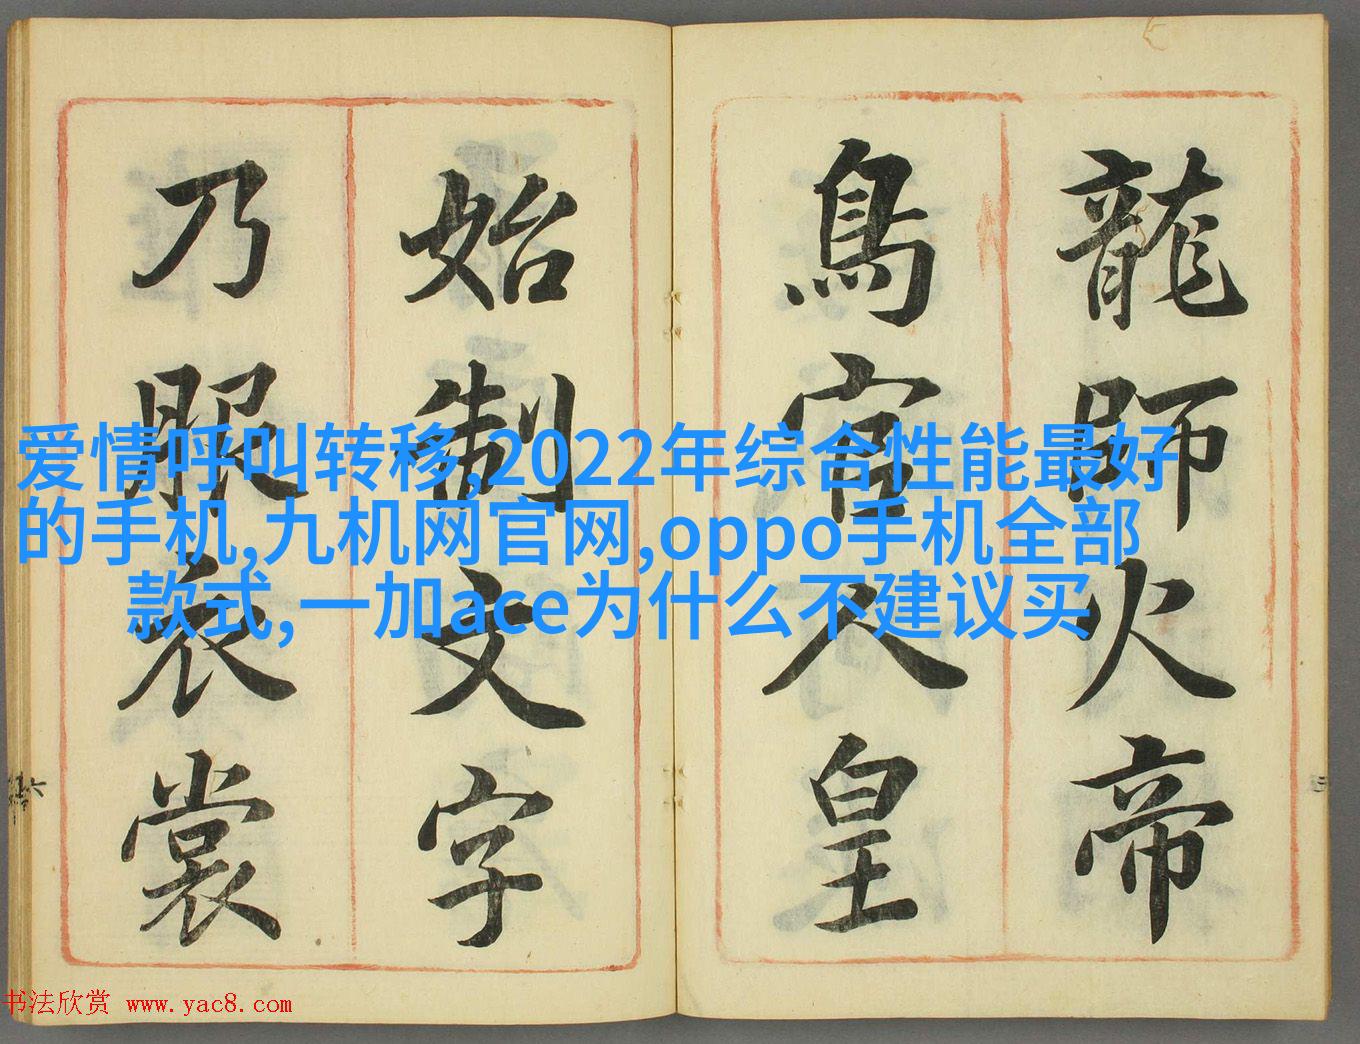 龍師火帝
鳥官人皇
始制文字
乃服衣裳
爱情呼叫转移,2022年综合性能最好
的手机,九机网官网,oppo手机全部
款式,一加ace为什么不建议买
书法欣赏 www.yac8.com